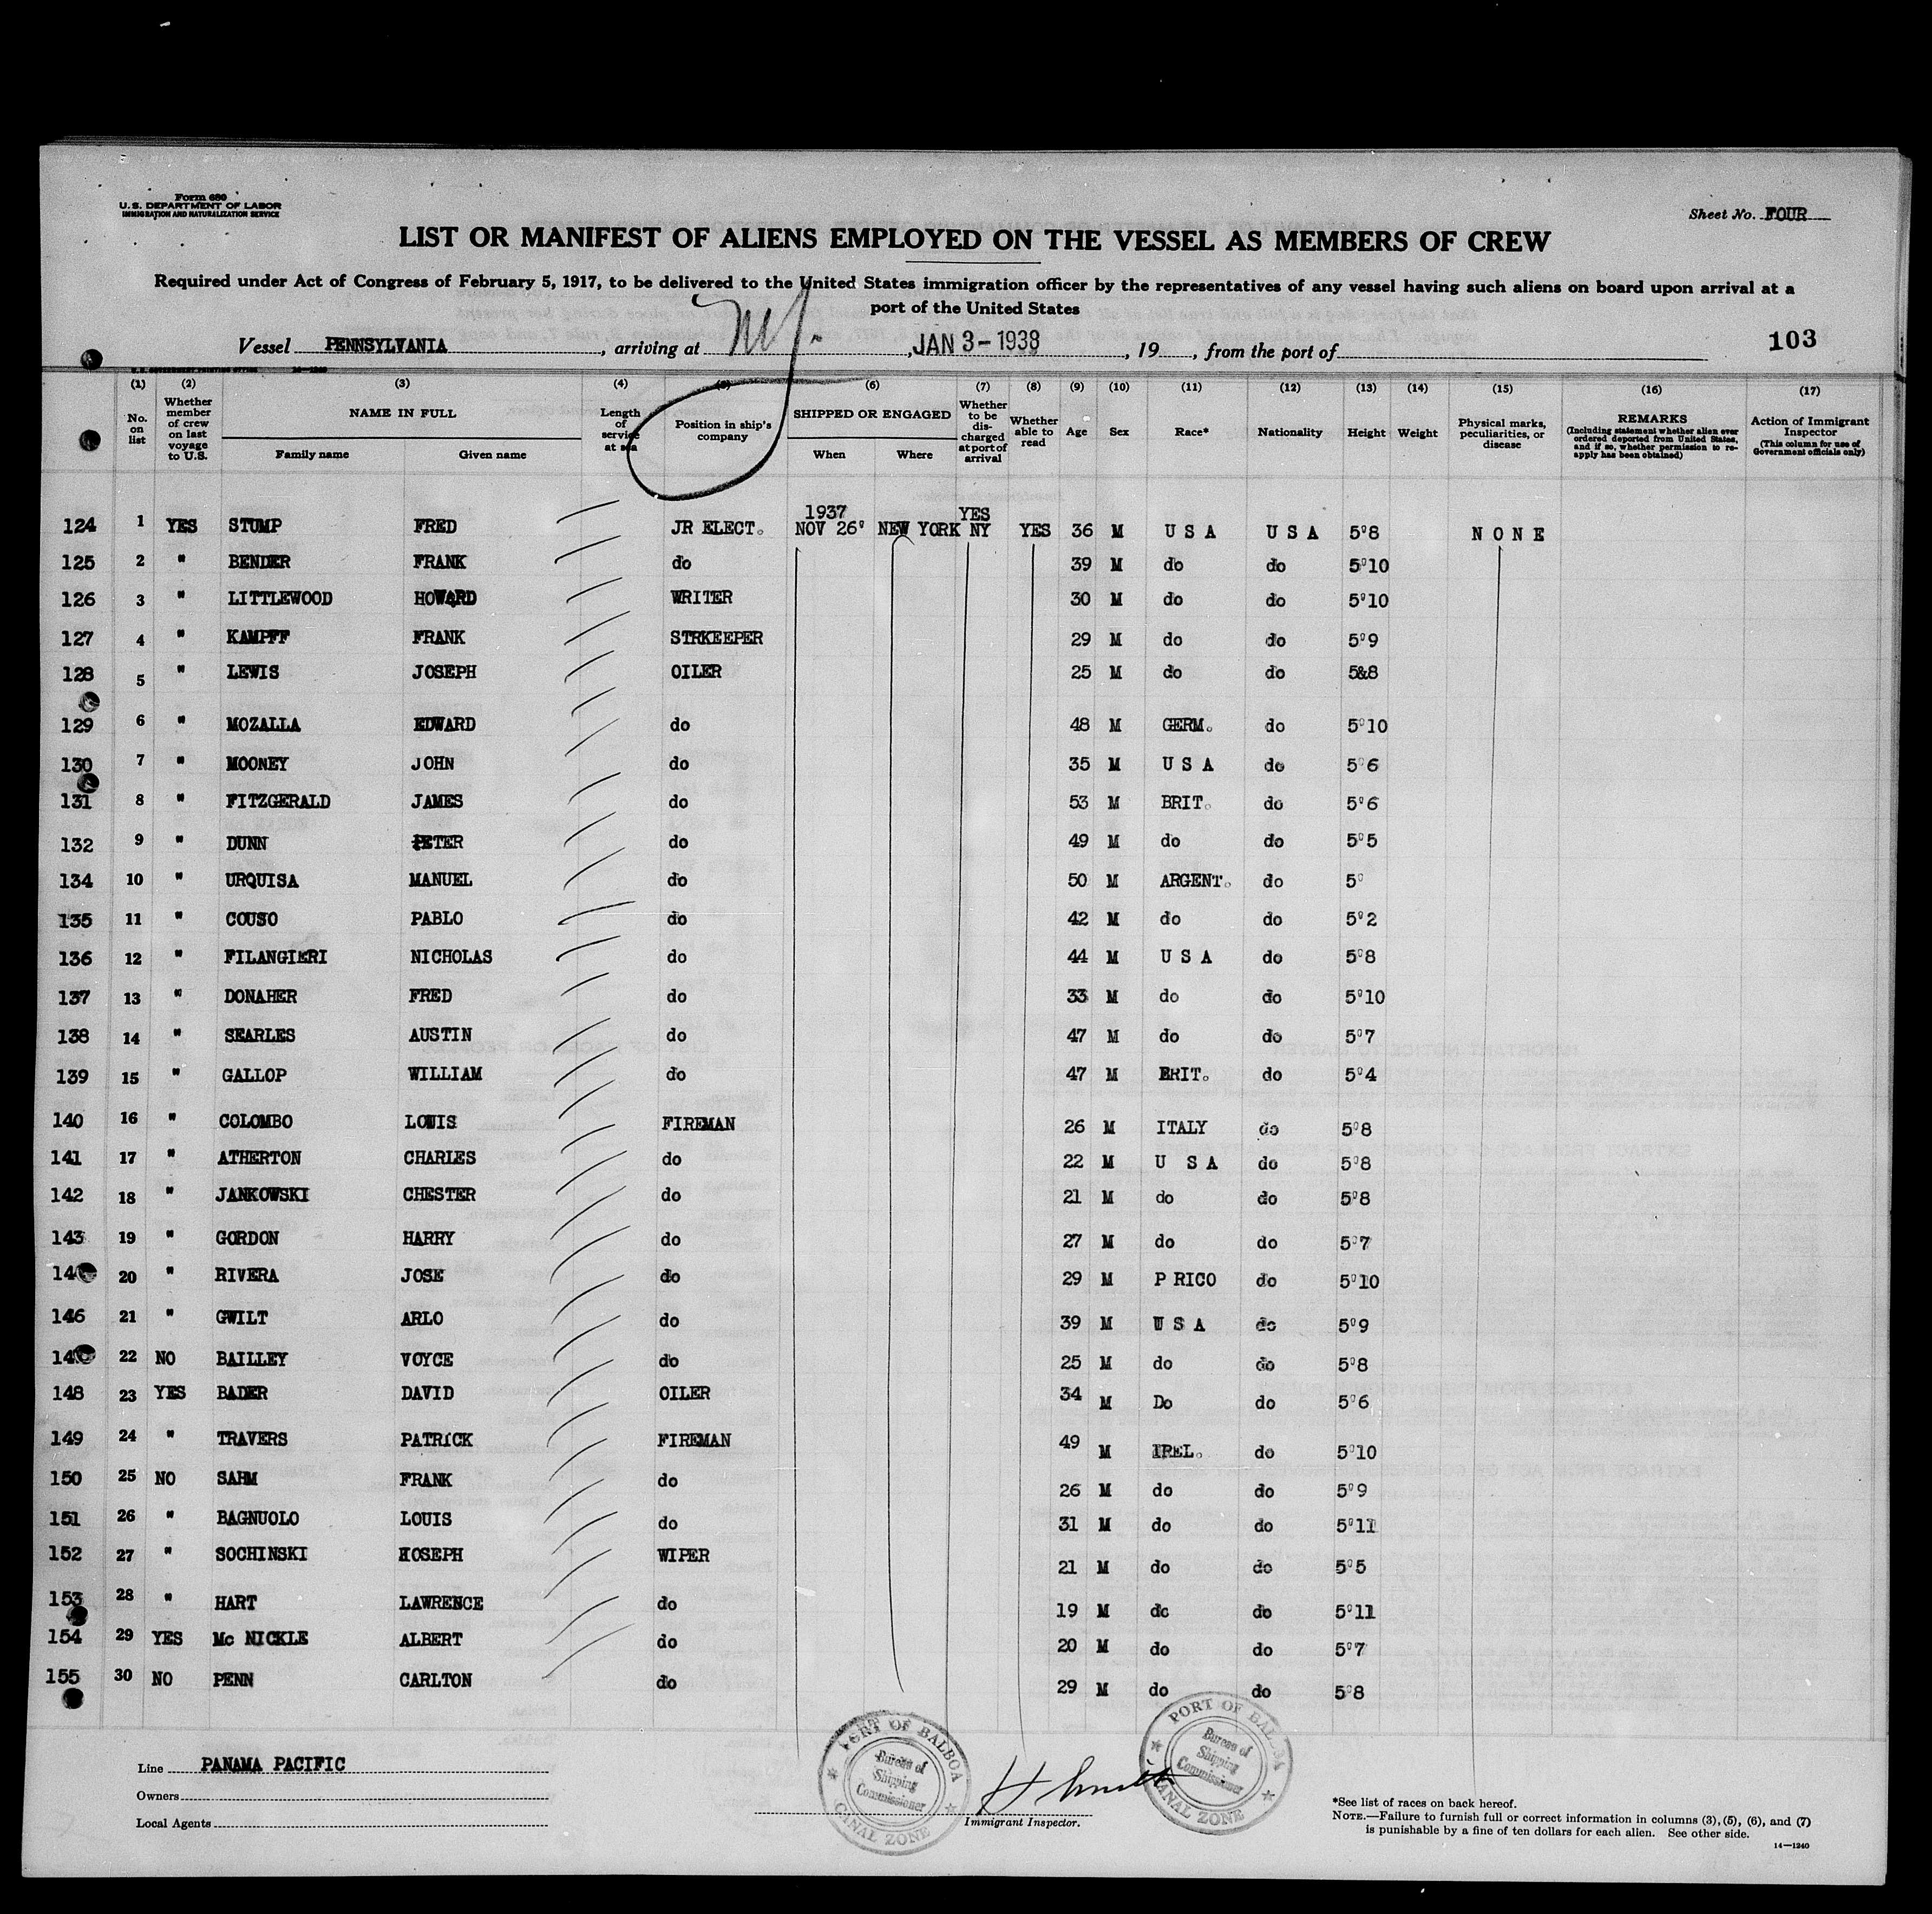 Form 680
U. S. DEPARTMENT OF LABOR
IMMIGRATION AND NATURALIZATION SERVICE
Sheet No. FOUR
LIST OR MANIFEST OF ALIENS EMPLOYED ON THE VESSEL AS MEMBERS OF CREW
Required under Act of Congress of February 5, 1917, to be delivered to the United States immigration officer by the representatives of any vessel having such aliens on board upon arrival at a
port of the United States
Vessel PENNSYLVANIA, arriving at NY., JAN 3-1938, 19, from the port of
103
(1) (2) (3) (4) (5) (6) (7) (8) (9) (10) (11) (12) (13) (14) (15) (16) (17)
No. on list
Whether member of crew on last voyage to U.S.
NAME IN FULL
Family name Given name
Length of service at sea
Position in ship's company
SHIPPED OR ENGAGED
When Where
Whether to be discharged at port of arrival
Whether able to read
Age
Sex
Race*
Nationality
Height
Weight
Physical marks, peculiarities, or disease
REMARKS
(Including statement whether alien ever ordered deported from United States, and if so, whether permission to re-apply has been obtained)
Action of Immigrant Inspector
(This column for use of Government officials only)
1937 YES
124 1 YES STUMP FRED JR ELECT. NOV 26' NEW YORK NY YES 36 M U S A U S A 5'8 N O N E
125 2 " BENDER FRANK do 39 M do do 5'10
126 3 " LITTLEWOOD HOWARD WRITER 30 M do do 5'10
127 4 " KAMPFF FRANK STRKEEPER 29 M do do 5'9
128 5 " LEWIS JOSEPH OILER 25 M do do 5&8
129 6 " MOZALLA EDWARD do 48 M GERM. do 5'10
130 7 " MOONEY JOHN do 35 M U S A do 5'6
131 8 " FITZGERALD JAMES do 53 M BRIT. do 5'6
132 9 " DUNN PETER do 49 M do do 5'5
134 10 " URQUISA MANUEL do 50 M ARGENT. do 5'
135 11 " COUSO PABLO do 42 M do do 5'2
136 12 " FILANGIERI NICHOLAS do 44 M U S A do 5'8
137 13 " DONAHER FRED do 33 M do do 5'10
138 14 " SEARLES AUSTIN do 47 M do do 5'7
139 15 " GALLOP WILLIAM do 47 M BRIT. do 5'4
140 16 " COLOMBO LOUIS FIREMAN 26 M ITALY do 5'8
141 17 " ATHERTON CHARLES do 22 M U S A do 5'8
142 18 " JANKOWSKI CHESTER do 21 M do do 5'8
143 19 " GORDON HARRY do 27 M do do 5'7
14 20 " RIVERA JOSE do 29 M P RICO do 5'10
146 21 " GWILT ARLO do 39 M U S A do 5'9
14 22 NO BAILLEY VOYCE do 25 M do do 5'8
148 23 YES BADER DAVID OILER 34 M Do do 5'6
149 24 " TRAVERS PATRICK FIREMAN 49 M IREL. do 5'10
150 25 NO SAHM FRANK do 26 M do do 5'9
151 26 " BAGNUOLO LOUIS do 31 M do do 5'11
152 27 " SOCHINSKI HOSEPH WIPER 21 M do do 5'5
153 28 " HART LAWRENCE do 19 M do do 5'11
154 29 YES Mc NICKLE ALBERT do 20 M do do 5'7
155 30 NO PENN CARLTON do 29 M do do 5'8
Line PANAMA PACIFIC
Owners
Local Agents
PORT OF BALBOA
Bureau of Shipping Commissioner
CANAL ZONE
Immigrant Inspector.
PORT OF BALBOA
Bureau of Shipping Commissioner
CANAL ZONE
*See list of races on back hereof.
NOTE.—Failure to furnish full or correct information in columns (3), (5), (6), and (7)
is punishable by a fine of ten dollars for each alien. See other side.
14—1240